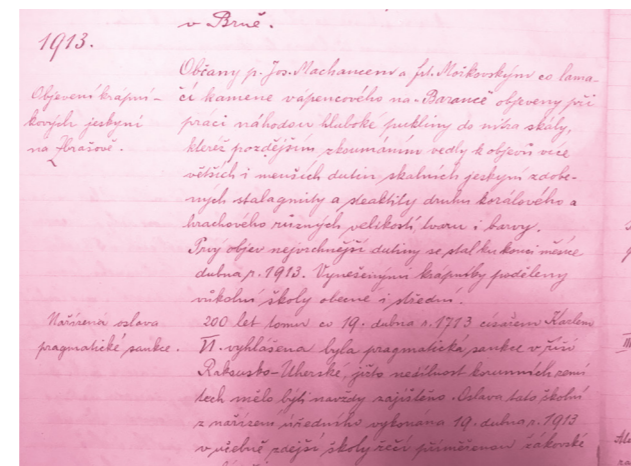 v Brně.
1913.
Objevení krápní-
kových jeskyní
na Zbrašově.
Občany p. Jos. Machancem a fil. Mořkovským co lama-
či kamene vápencového na Baránce objeveny při
práci náhodou hluboké pukliny do nitra skály,
kteréž pozdějším zkoumáním vedly k objevu více
větších i menších dutin skalních jeskyní zdobe-
ných stalagmity a steaktity druhu korálového a
hrachového různých velikostí, tvaru i barvy.
Prvý objev nejvrchnější dutiny se stal ku konci měsíce
dubna r. 1913. Vynešenými krápníky poděleny
vůkolní školy obecné i střední.
Nařízená oslava
pragmatické sankce.
200 let tomu co 19. dubna r. 1713 císařem Karlem
VI. vyhlášena byla pragmatická sankce v říši
Rakousko-Uherské, jížto nedílnost korunních zemí
těch mělo býti navždy zajištěno. Oslava tato školní
z nařízení úředního vykonána 19. dubna r. 1913
v učebně zdejší školy řečí přiměřenou žákovské